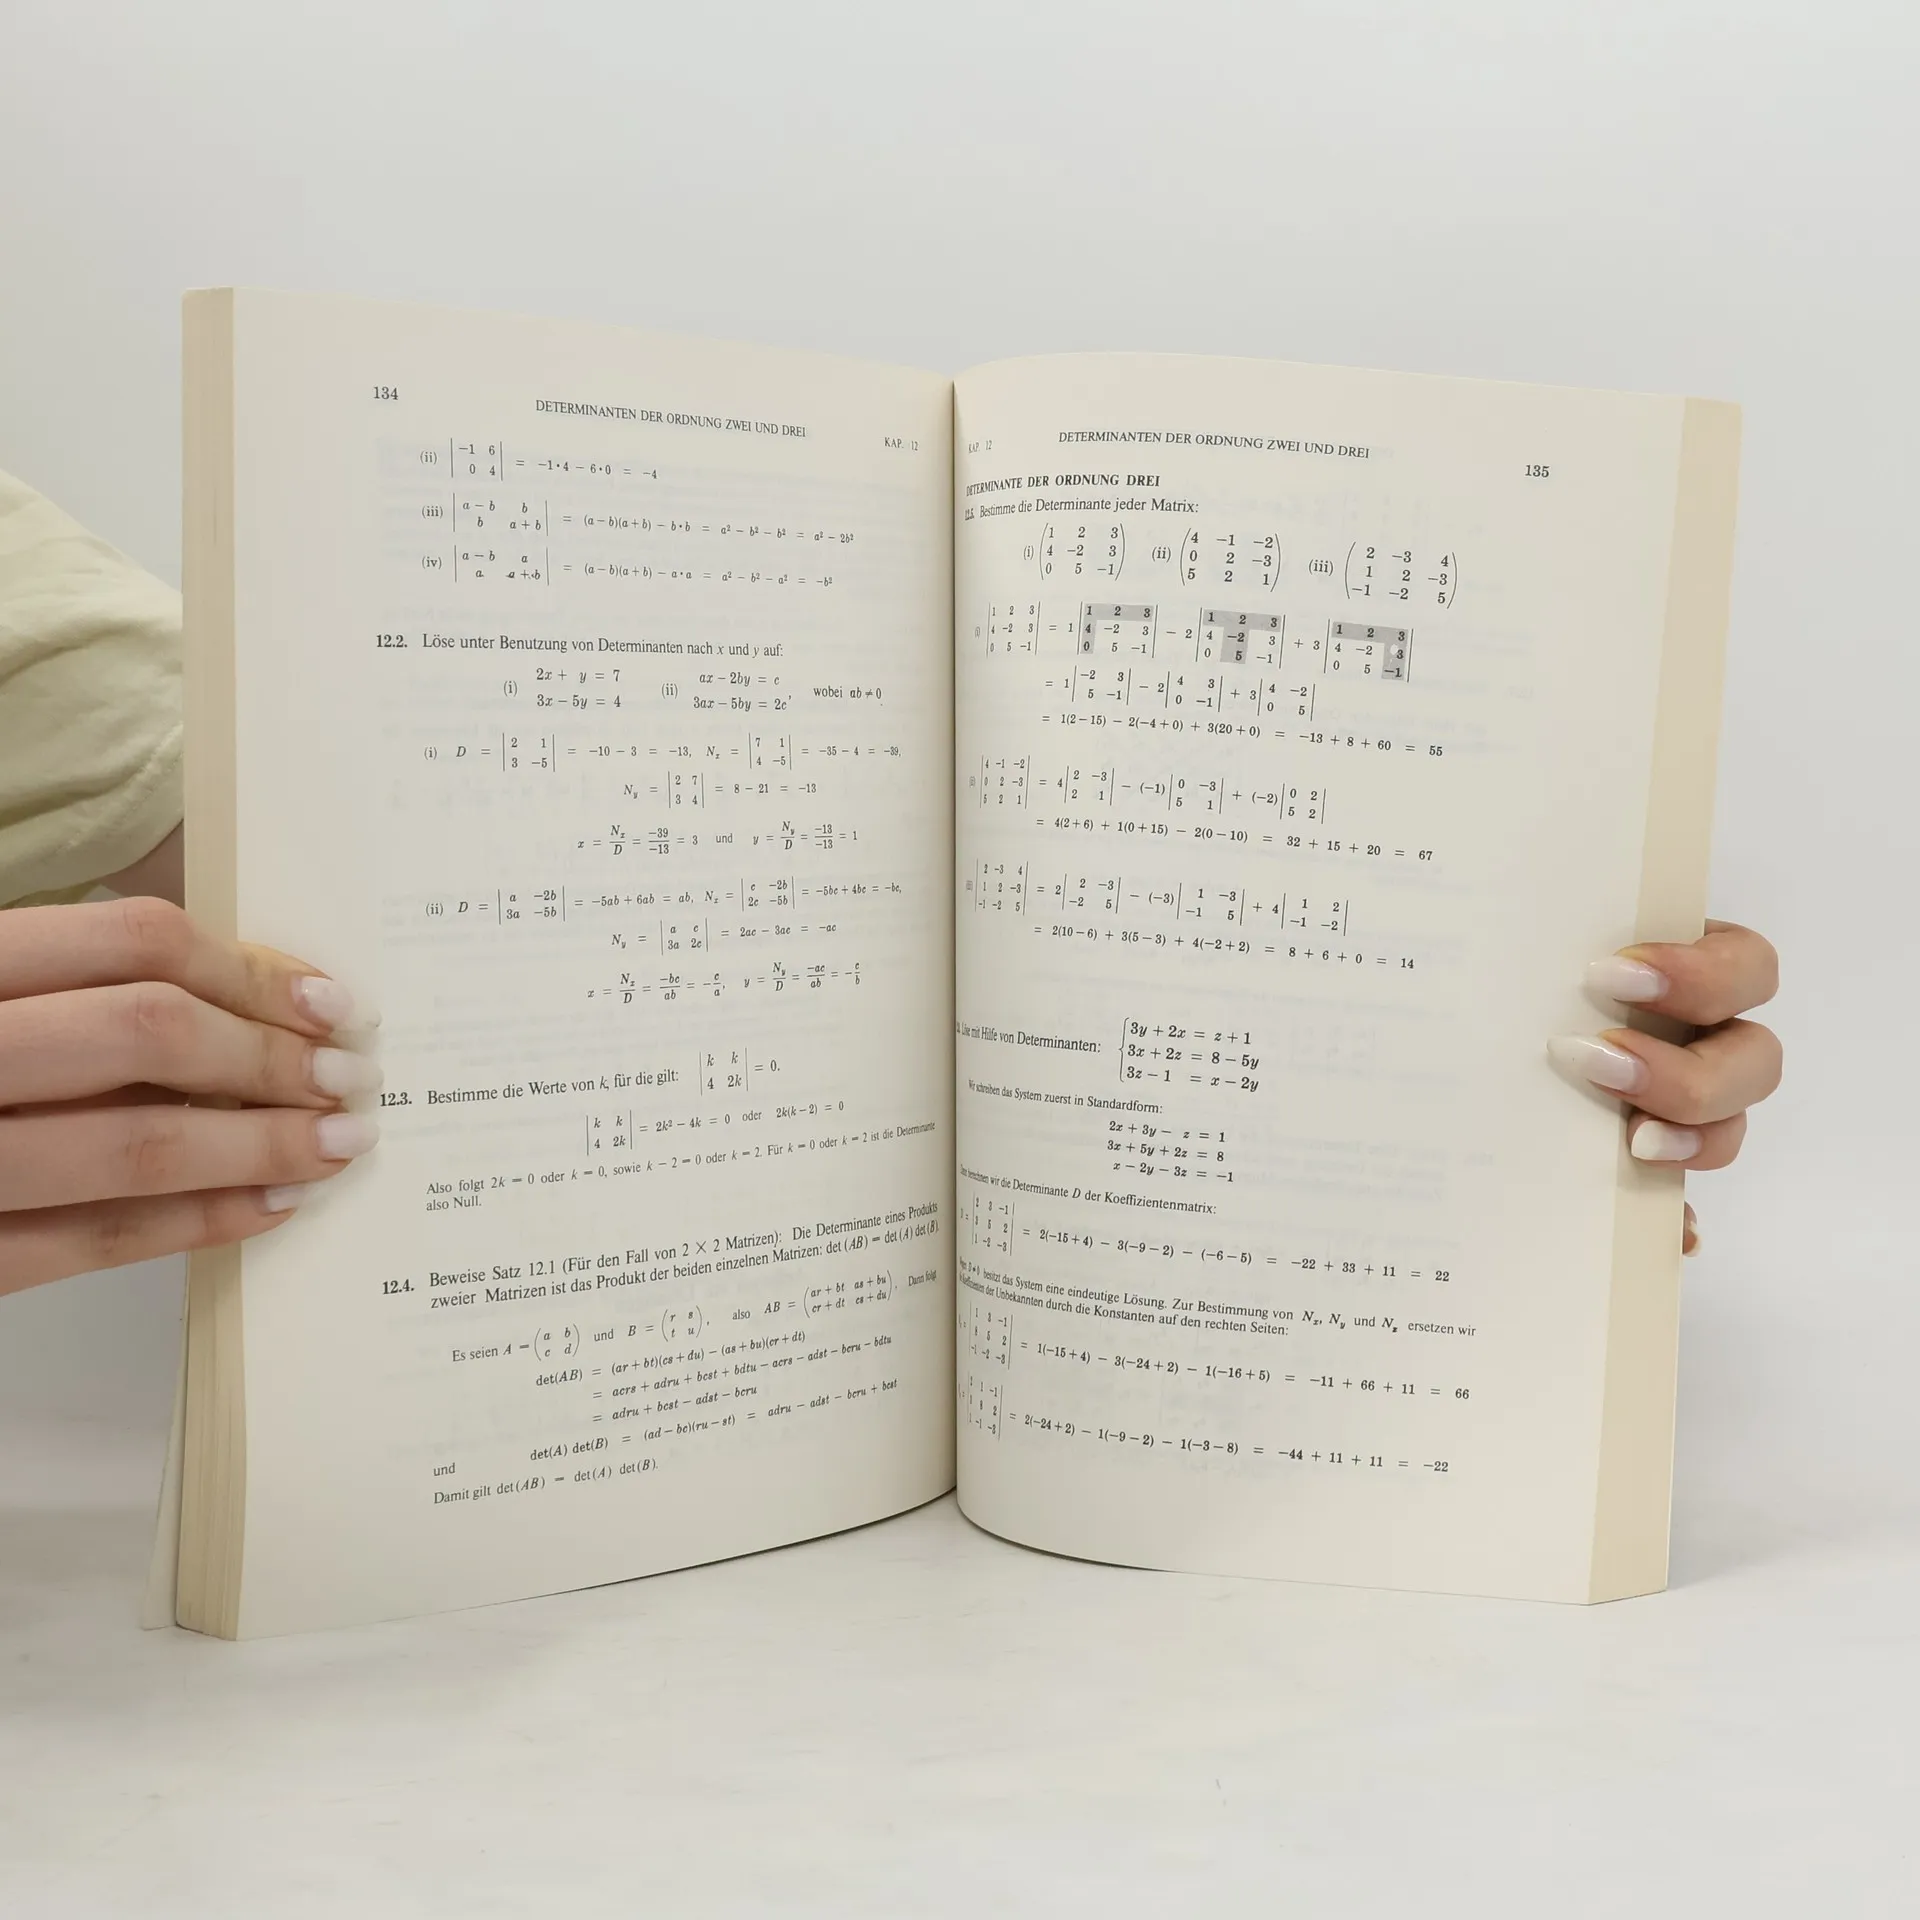 134
DETERMINANTEN DER ORDNUNG ZWEI UND DREI
KAP. 12
(ii) | −1 6 ; 0 4 | = −1·4 − 6·0 = −4
(iii) | a − b b ; b a + b | = (a − b)(a + b) − b·b = a² − b² − b² = a² − 2b²
(iv) | a − b a ; a a + b | = (a − b)(a + b) − a·a = a² − b² − a² = −b²
12.2. Löse unter Benutzung von Determinanten nach x und y auf:
(i) 2x + y = 7 ; 3x − 5y = 4 (ii) ax − 2by = c ; 3ax − 5by = 2c , wobei ab ≠ 0
(i) D = | 2 1 ; 3 −5 | = −10 − 3 = −13, Nx = | 7 1 ; 4 −5 | = −35 − 4 = −39,
Ny = | 2 7 ; 3 4 | = 8 − 21 = −13
x = Nx/D = −39/−13 = 3 und y = Ny/D = −13/−13 = 1
(ii) D = | a −2b ; 3a −5b | = −5ab + 6ab = ab, Nx = | c −2b ; 2c −5b | = −5bc + 4bc = −bc,
Ny = | a c ; 3a 2c | = 2ac − 3ac = −ac
x = Nx/D = −bc/ab = −c/a, y = Ny/D = −ac/ab = −c/b
12.3. Bestimme die Werte von k, für die gilt: | k k ; 4 2k | = 0.
| k k ; 4 2k | = 2k² − 4k = 0 oder 2k(k − 2) = 0
Also folgt 2k = 0 oder k = 0, sowie k − 2 = 0 oder k = 2. Für k = 0 oder k = 2 ist die Determinante
also Null.
12.4. Beweise Satz 12.1 (Für den Fall von 2 × 2 Matrizen): Die Determinante eines Produkts
zweier Matrizen ist das Produkt der beiden einzelnen Matrizen: det (AB) = det (A) det (B).
Es seien A = ( a b ; c d ) und B = ( r s ; t u ), also AB = ( ar + bt as + bu ; cr + dt cs + du ). Dann folgt
det(AB) = (ar + bt)(cs + du) − (as + bu)(cr + dt)
= acrs + adru + bcst + bdtu − acrs − adst − bcru − bdtu
= adru + bcst − adst − bcru
und det(A) det(B) = (ad − bc)(ru − st) = adru − adst − bcru + bcst
Damit gilt det (AB) = det (A) det (B).
KAP. 12
DETERMINANTEN DER ORDNUNG ZWEI UND DREI
135
DETERMINANTE DER ORDNUNG DREI
12.5. Bestimme die Determinante jeder Matrix:
(i) ( 1 2 3 ; 4 −2 3 ; 0 5 −1 ) (ii) ( 4 −1 −2 ; 0 2 −3 ; 5 2 1 ) (iii) ( 2 −3 4 ; 1 2 −3 ; −1 −2 5 )
(i) | 1 2 3 ; 4 −2 3 ; 0 5 −1 | = 1 | 1 2 3 ; 4 −2 3 ; 0 5 −1 | − 2 | 1 2 3 ; 4 −2 3 ; 0 5 −1 | + 3 | 1 2 3 ; 4 −2 3 ; 0 5 −1 |
= 1 | −2 3 ; 5 −1 | − 2 | 4 3 ; 0 −1 | + 3 | 4 −2 ; 0 5 |
= 1(2 − 15) − 2(−4 + 0) + 3(20 + 0) = −13 + 8 + 60 = 55
(ii) | 4 −1 −2 ; 0 2 −3 ; 5 2 1 | = 4 | 2 −3 ; 2 1 | − (−1) | 0 −3 ; 5 1 | + (−2) | 0 2 ; 5 2 |
= 4(2 + 6) + 1(0 + 15) − 2(0 − 10) = 32 + 15 + 20 = 67
| 2 −3 4 ; 1 2 −3 ; −1 −2 5 | = 2 | 2 −3 ; −2 5 | − (−3) | 1 −3 ; −1 5 | + 4 | 1 2 ; −1 −2 |
= 2(10 − 6) + 3(5 − 3) + 4(−2 + 2) = 8 + 6 + 0 = 14
Löse mit Hilfe von Determinanten: { 3y + 2x = z + 1 ; 3x + 2z = 8 − 5y ; 3z − 1 = x − 2y
Wir schreiben das System zuerst in Standardform:
2x + 3y − z = 1
3x + 5y + 2z = 8
x − 2y − 3z = −1
berechnen wir die Determinante D der Koeffizientenmatrix:
D = | 2 3 −1 ; 3 5 2 ; 1 −2 −3 | = 2(−15 + 4) − 3(−9 − 2) − (−6 − 5) = −22 + 33 + 11 = 22
D ≠ 0 besitzt das System eine eindeutige Lösung. Zur Bestimmung von Nx, Ny und Nz ersetzen wir
der Unbekannten durch die Konstanten auf den rechten Seiten:
| 1 3 −1 ; 8 5 2 ; −1 −2 −3 | = 1(−15 + 4) − 3(−24 + 2) − 1(−16 + 5) = −11 + 66 + 11 = 66
| 2 1 −1 ; 3 8 2 ; 1 −1 −3 | = 2(−24 + 2) − 1(−9 − 2) − 1(−3 − 8) = −44 + 11 + 11 = −22